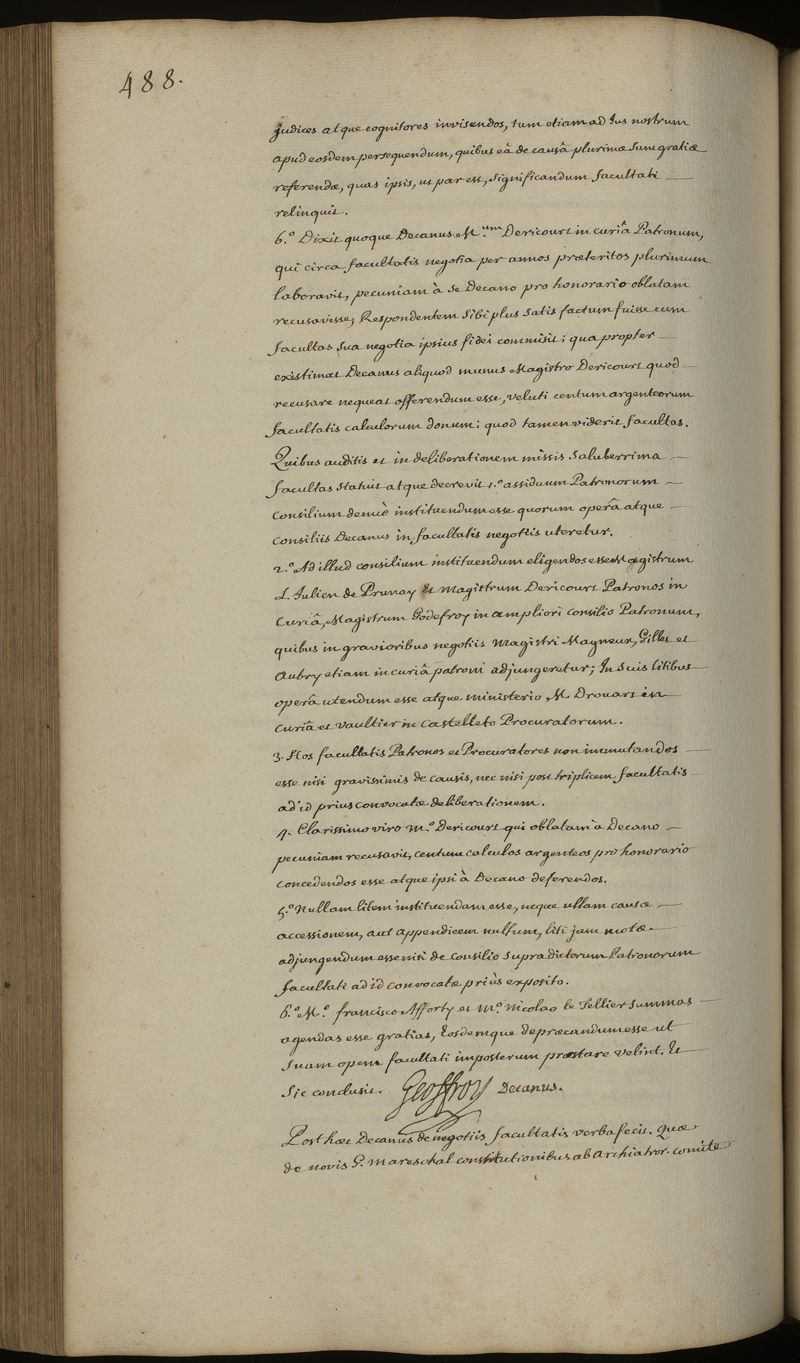 488.
Judices atque cognitores invisendos, tum etiam ad Jus nostrum
apud eosdem persequendum, quibus eâ de causâ plurimæ sunt gratiæ
referendæ, quas ipsis, ut par est, significandum facultati
relinquit.
6.º Dixit quoque Decanus M.um Dericourt in curiâ Patronum,
qui circa facultatis negotia per annos præteritos plurimum
laboravit, pecuniam à se Decano pro honorario oblatam
recusavisse; Respondentem sibi plus satis factum fuisse cum
facultas sua negotia ipsius fidei commisit; qua propter
existimat Decanus aliquod munus Magistro Dericourt quod
recusare nequeat offerendum esse, veluti centum argenteorum
facultatis calculorum donum: quod tamen viderit facultas.
Quibus auditis et in deliberationem missis Saluberrima
facultas statuit atque decrevit 1.º assiduum Patronorum
Consilium denuò instituendum esse quorum operâ atque
Consiliis Decanus in facultatis negotiis uteretur.
2.º Ad illud consilium instituendum eligendos esse Magistrum
L. Julien de Prunay Et Magistrum Dericourt Patronos in
Curiâ, Magistrum Godefroy in ampliori Consilio Patronum,
quibus in gravioribus negotiis Magistri Magneux, Gillet et
Aubry etiam in curiâ patroni adjungeretur; In suis litibus
operâ utendum esse atque ministerio M. Drouart in
Curiâ et Vaultier in Castelleto Procuratorum.
3. Hos facultatis Patronos et Procuratores non immutandos
esse nisi gravissimis de causis, nec nisi post triplicem facultatis
ad id prius convocatæ deliberationem.
4. Clarissimo viro M.º Dericourt qui oblatam à Decano
pecuniam recusavit, centum calculos argenteos pro honorario
concedendos esse atque ipsi à Decano deferendos.
5.º Nullam litem instituendam esse, neque ullam causæ
accessionem, aut appendicem nullum, liti jam motæ
adjungendum esse nisi de Consilio supradictorum Patronorum
facultati ad id convocatæ priùs exposito.
6.º M.º francisco Afforty et M.º Nicolao le Tellier summas
agendas esse gratias, Eosdemque deprecandum esse ut
suam opem facultati imposterum præstare velint. Et
Sic conclusit. Geoffroy Decanus.
Post hæc Decanus de negotiis facultatis verba fecit. Quæ
de novis G. Mareschal constitutionibus ab Archiatror. comite